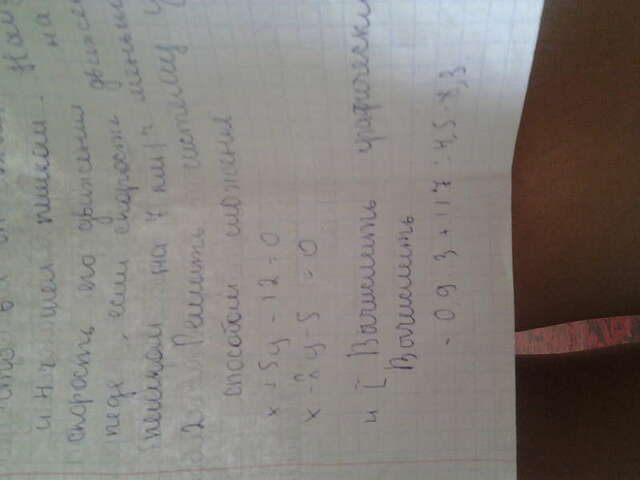 и 4 ч шел пешком. Най
скорость его движения на
педе, если скорость движен
пешком на 7 км/ч меньш
2. Решить систему у
способом сложения
x + 5y - 12 = 0
x - 2y - 5 = 0
4 [ Вычислить графически
Вычислить
- 0,9 · 3 + 117 : 4,5 · 8,3